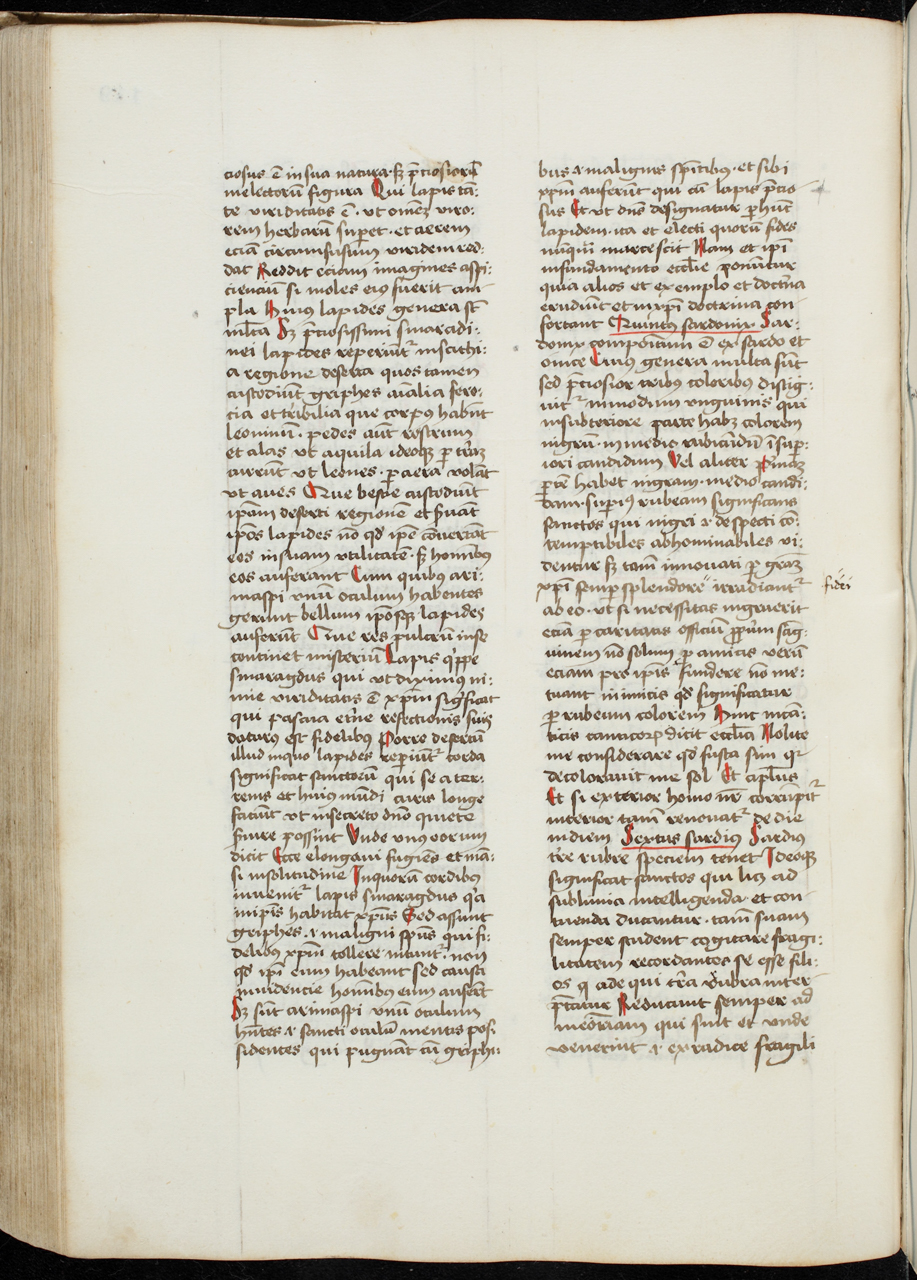 ciosus ē in sua natura · sꝫ p̄ciosiorē
in electorū figura Qui lapis tā-
te viriditatis ē · vt omneꝫ viro-
rem herbarū sup̄et · et aerem
eciā circumfusum viridem red-
dat Reddit eciam imagines aspi-
cienciū si moles eiꝰ fuerit am-
pla Huiꝰ lapides genera st̄
ml̄ta Sꝫ p̄ciosissimi smaracdi-
nei lapides reperiūt᷑ in scithi-
a regione deserta quos tamen
custodiūt griphes aīalia fero-
cia et tribilia que corpꝰ habn̄t
leoninū · pedes aūt rostrum
et alas vt aquila ideoqꝫ p̲ t̄rāꝫ
currūt vt leones · p̲ aera volāt
vt aues Que bestie custodiūt
ip̄am deserti regionē et s̄uāt
ip̄os lapides nō qd̓ ip̄e cōuertāt
eos in suam vtilitatē · sꝫ homībꝰ
eos auferant Cum quibus ari-
maspi vnū oculum habentes
gerunt bellum ip̄osqꝫ lapides
auferūt Que res pulcrū in se
continet misteriū Lapis q̓ppe
smaragdus qui vt diximꝰ ni-
mie viriditatis ē xp̄m sig̓ficat
qui pascua et̓ne refectionis suis
daturus est fidelibus Porro desertū
illud in quo lapides rep̲iūt᷑ corda
significat sanctorū qui se a ter-
renis et huiꝰ mūdi curis longe
faciūt vt in secreto dn̄o quiete
s̓uire possint Vnde vnus eorum
dicit Ecce elongaui fugiēs et mā-
si in solitudine In quorū cordibꝰ
inuenit᷑ lapis smaragdus q̓a
in ip̄is habitat xp̄us Sed assunt
griphes · ⁊ maligni sp̄us qui fi-
delibꝰ xp̄m tollere nitunt᷑ · non
qd̓ ip̄i eum habeant sed causa
inuidencie homībus eum auferēt
Sꝫ sūt arimaspi vnū oculum
hn̄tes ⁊ sancti oculū mentis pos-
sidentes qui pugnāt cū griphi-
bus ⁊ malignis sp̄itibꝰ · et sibi
xp̄m auferūt qui cū lapis p̄cio-
sus Et vt dn̄s designatur p̲ hūc
lapidem · ita et electi quorū fides
nūquā marcescit Nam et ip̄i
in fundamento eccl̄ie ponūtur
quia alios et exemplo et doctͥna
erudiūt et in xp̄i doctrina con-
fortant Quintꝰ sardonix Sar-
donix compositum ē ex sardo et
onice Cuius genera multa sūt
sed p̄ciosior tribꝰ coloribus distīg-
uit᷑ in modum vnguinis qui
in subteriore parte habꝫ colorem
nigrū · in medio rubicūdū ī sup̲-
iori candidum Vel aliter p̓mā
p̲tē habet nigram · medio candi-
dam · sup̲iꝰ rubeam significans
sanctos qui nigri ⁊ despecti cō-
temptibiles abhominabiles vi-
dentur sꝫ tam̄ innouati p̲ graꝫ
xp̄i semp̲ splendore irradiant᷑
fidei
ab eo · vt si necessitas ingruerit
eciā p̲ caritatis officiū p̲p̓um sāg-
uinem nō solum p̲ amicis verū
eciam pro ip̄is fundere nō me-
tuant inimicis qd̓ significatur
p̲ rubeum colorem Hinc in cā-
ticis canticorꝫ dicit eccl̄ia Nolite
me considerare qd̓ fusca sim q̓
decolorauit me sol Et ap̄lus
Et si exterior homo nr̄ corrūpit᷑
interior tam̄ renouat᷑ de die
in diem Sextus sardius Sardiꝰ
t̄re rubre speciem tenet Ideoqꝫ
significat sanctos qui licꝫ ad
sublimia intelligenda · et con-
tuenda ducantur · tam̄ suam
semper student cogitare fragi-
litatem recordantes se esse fili-
os q ade qui t̄ra rubra inter-
p̄tatur Reducunt semper ad
meōriam qui sint et vnde
venerint ⁊ ex radice fragili